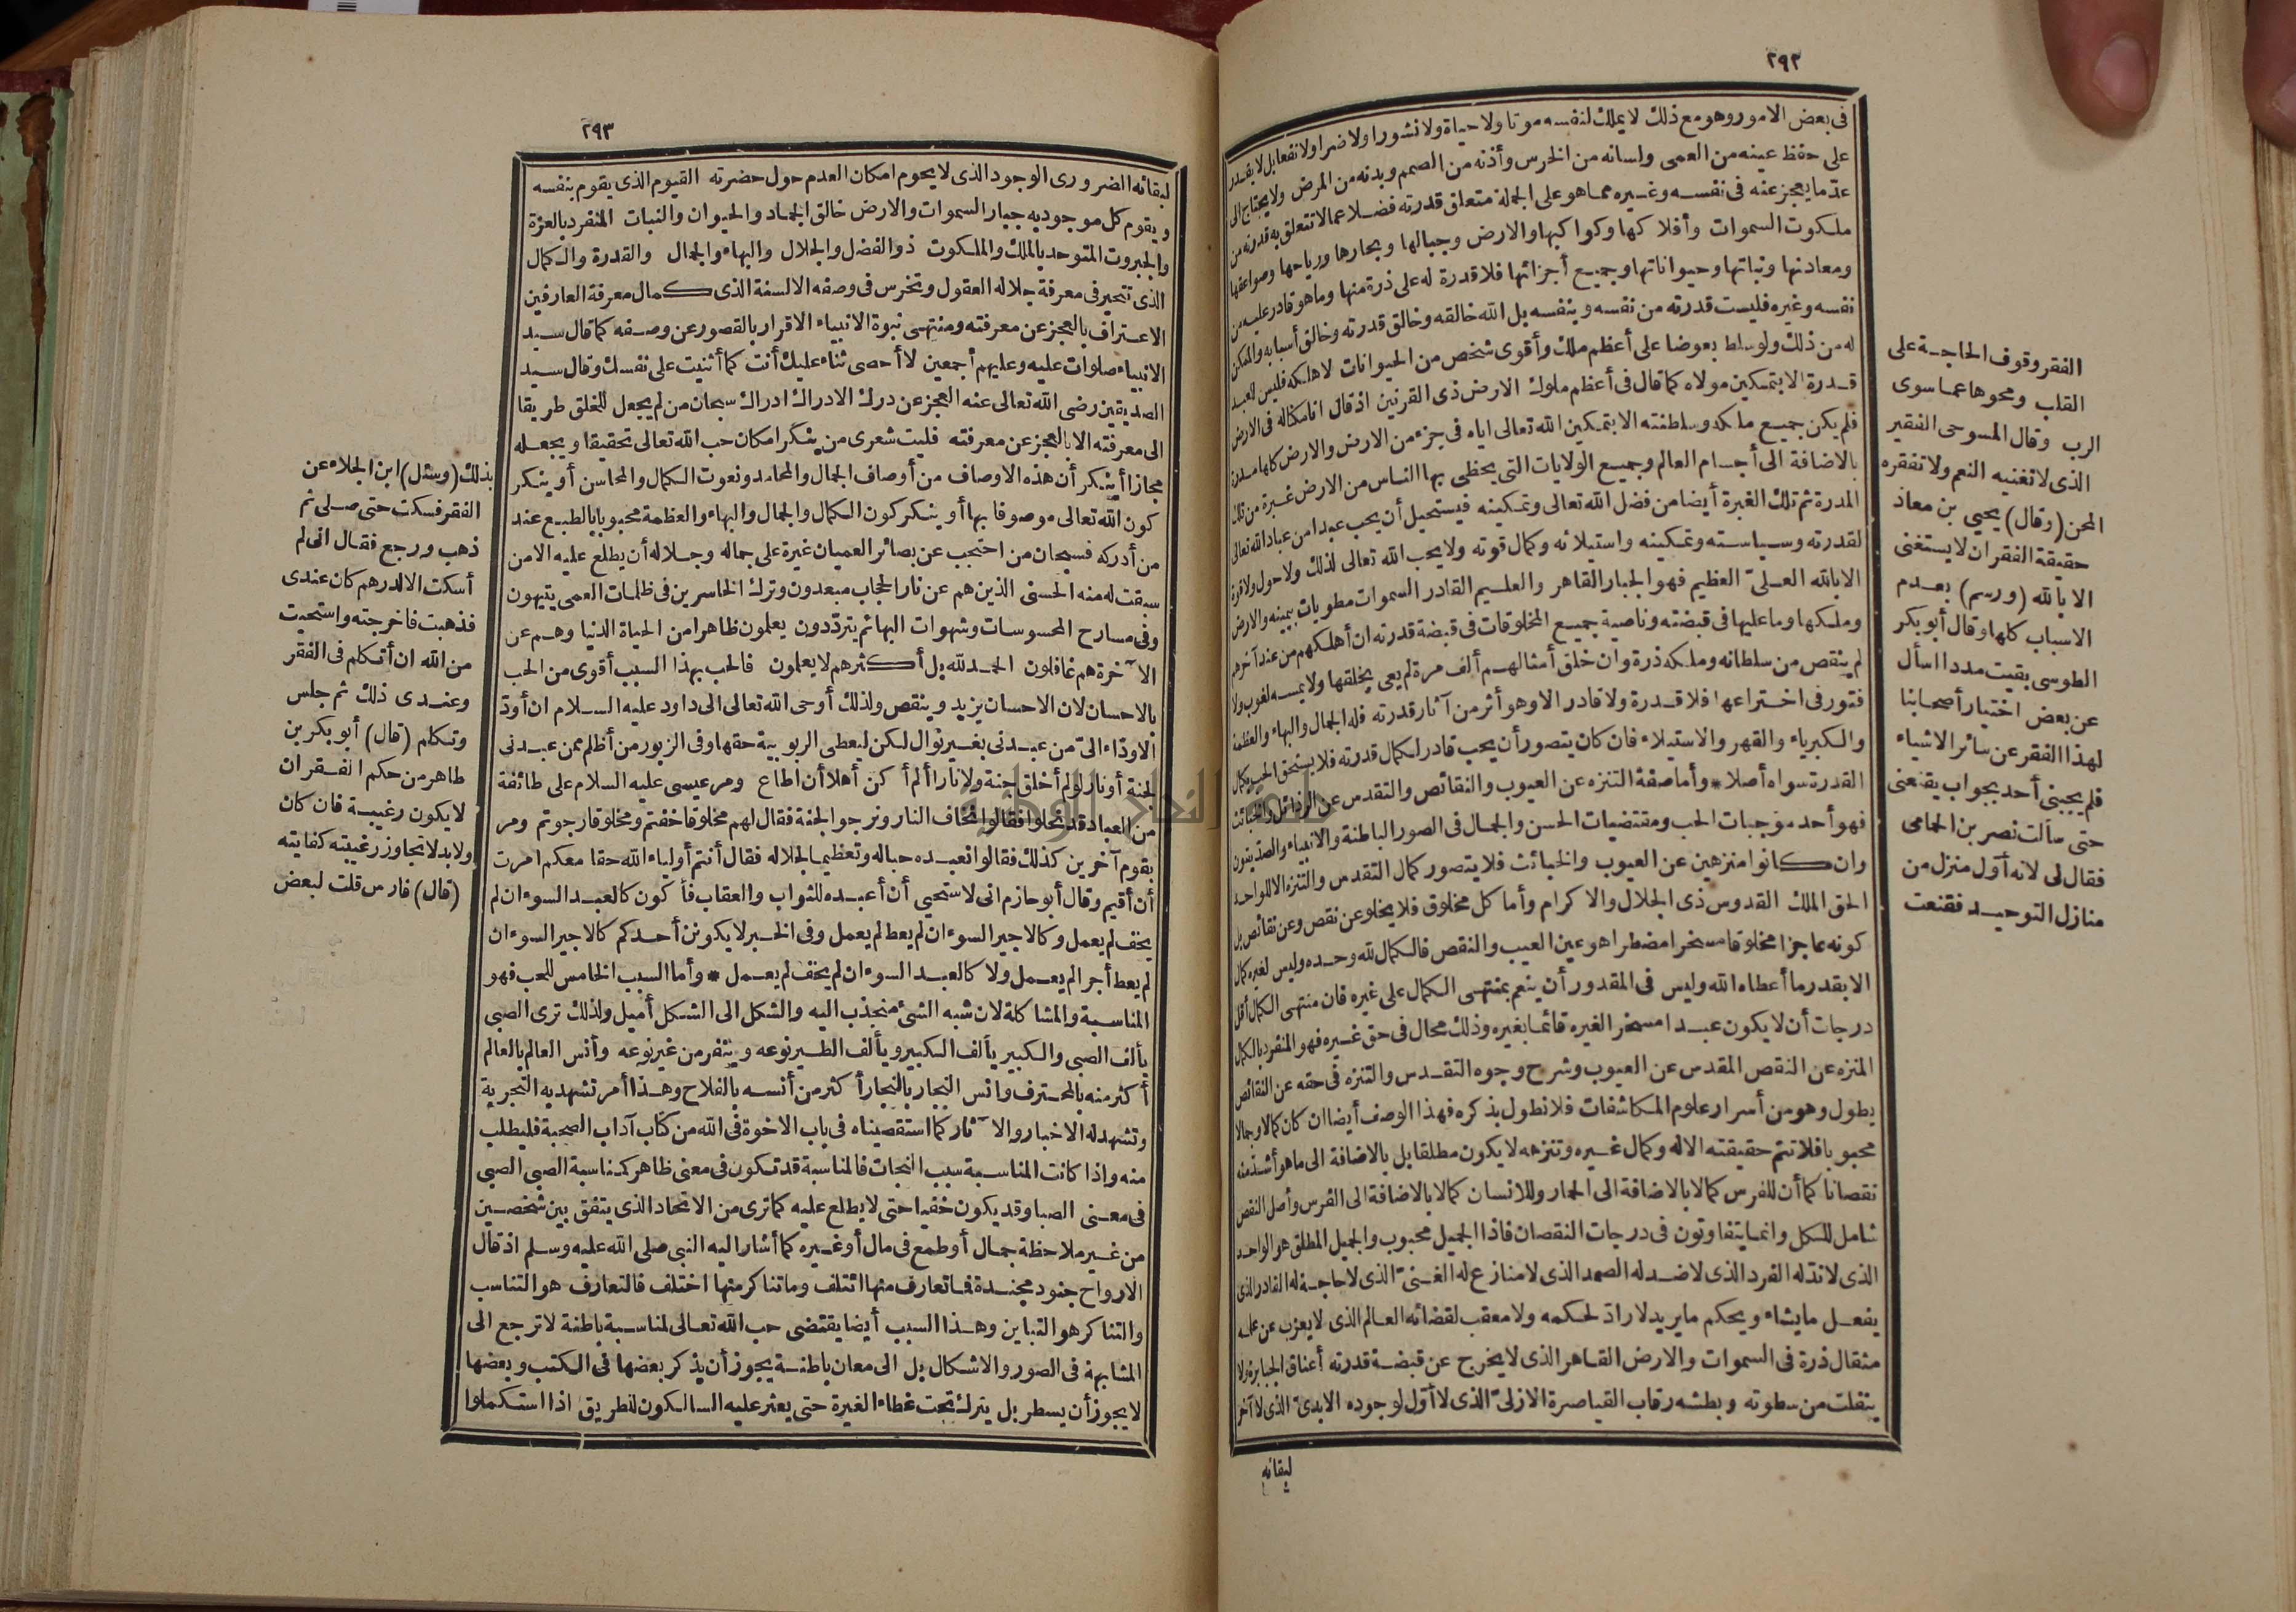 ٢٩٢
فى بعض الامور وهو مع ذلك لا يملك لنفسه موتا ولا حياة ولا نشورا ولا ضرا ولا نفعا بل لا يقدر
على حفظ عينه من العمى ولسانه من الخرس وأذنه من الصمم وبدنه من المرض ولا يحتاج الى
عدّ ما يعجز عنه فى نفسه وغيره مما هو على الجملة متعلق قدرته فضلا عما لا تتعلق به قدرته من
ملكوت السموات وأفلاكها وكواكبها والارض وجبالها وبحارها ورياحها وصواعقها
ومعادنها ونباتها وحيواناتها وجميع أجزائها فلا قدرة له على ذرة منها وما هو قادر عليه من
نفسه وغيره فليست قدرته من نفسه وبنفسه بل الله خالقه وخالق قدرته وخالق أسبابه والممكن
له من ذلك ولو سلط بعوضا على أعظم ملك وأقوى شخص من الحيوانات لاهلكه فليس للعبد
قدرة الا بتمكين مولاه كما قال فى أعظم ملوك الارض ذى القرنين اذ قال انا مكنا له فى الارض
فلم يكن جميع ملكه وسلطنته الا بتمكين الله تعالى اياه فى جزء من الارض والارض كلها مدرة
بالاضافة الى أجسام العالم وجميع الولايات التى يحظى بها الناس من الارض غبرة من تلك
المدرة ثم تلك الغبرة أيضا من فضل الله تعالى وتمكينه فيستحيل أن يحب عبدا من عباد الله تعالى
لقدرته وسياسته وتمكينه واستيلائه وكمال قوته ولا يحب الله تعالى لذلك ولا حول ولا قوة
الا بالله العلىّ العظيم فهو الجبار القاهر والعليم القادر السموات مطويات بيمينه والارض
وملكها وما عليها فى قبضته وناصية جميع المخلوقات فى قبضة قدرته ان أهلكهم من عند آخرهم
لم ينقص من سلطانه وملكه ذرة وان خلق أمثالهم ألف مرة لم يعى بخلقها ولا يمسه لغوب ولا
فتور فى اختراعها فلا قدرة ولا قادر الا وهو أثر من آثار قدرته فله الجمال والبهاء والعظمة
والكبرياء والقهر والاستيلاء فان كان يتصور أن يحب قادر لكمال قدرته فلا يستحق الحب بكمال
القدرة سواه أصلا * وأما صفة التنزه عن العيوب والنقائص والتقدس عن الرذائل والخبائث
فهو أحد موجبات الحب ومقتضيات الحسن والجمال فى الصور الباطنة والانبياء والصديقون
وان كانوا منزهين عن العيوب والخبائث فلا يتصور كمال التقدس والتنزه الا للواحد
الحق الملك القدوس ذى الجلال والاكرام وأما كل مخلوق فلا يخلو عن نقص وعن نقائص بل
كونه عاجزا مخلوقا مسخرا مضطرا هو عين العيب والنقص فالكمال لله وحده وليس لغيره كمال
الا بقدر ما أعطاه الله وليس فى المقدور أن ينعم بمنتهى الكمال على غيره فان منتهى الكمال أقل
درجات أن لا يكون عبدا مسخرا لغيره قائما بغيره وذلك محال فى حق غيره فهو المنفرد بالكمال
المنزه عن النقص المقدس عن العيوب وشرح وجوه التقدس والتنزه فى حقه عن النقائص
يطول وهو من أسرار علوم المكاشفات فلا نطول بذكره فهذا الوصف أيضا ان كان كمالا وجمالا
محبوبا فلا تتم حقيقته الا له وكمال غيره وتنزهه لا يكون مطلقا بل بالاضافة الى ما هو أشد منه
نقصانا كما أن للفرس كمالا بالاضافة الى الحمار وللانسان كمالا بالاضافة الى الفرس وأصل النقص
شامل للكل وانما يتفاوتون فى درجات النقصان فاذا الجميل محبوب والجميل المطلق هو الواحد
الذى لا ندّ له الفرد الذى لا ضد له الصمد الذى لا منازع له الغنىّ الذى لا حاجة له القادر الذى
يفعل ما يشاء ويحكم ما يريد لا رادّ لحكمه ولا معقب لقضائه العالم الذى لا يعزب عن علمه
مثقال ذرة فى السموات والارض القاهر الذى لا يخرج عن قبضة قدرته أعناق الجبابرة ولا
ينفلت من سطوته وبطشه رقاب القياصرة الازلىّ الذى لا أوّل لوجوده الابدىّ الذى لا آخر
لبقائه
الفقر وقوف الحاجة على
القلب ومحوها عما سوى
الرب وقال المسوحى الفقير
الذى لا تغنيه النعم ولا تفقره
المحن (وقال) يحيى بن معاذ
حقيقة الفقر ان لا يستغنى
الا بالله (ورسم) بعدم
الاسباب كلها وقال أبو بكر
الطوسى بقيت مدة اسأل
عن بعض اختيار أصحابنا
لهذا الفقر عن سائر الاشياء
فلم يجبنى أحد بجواب يقنعنى
حتى سألت نصر بن الحمامى
فقال لى لانه أوّل منزل من
منازل التوحيد فقنعت
٢٩٣
لبقائه الضرورى الوجود الذى لا يحوم امكان العدم حول حضرته القيوم الذى يقوم بنفسه
ويقوم كل موجود به جبار السموات والارض خالق الجماد والحيوان والنبات المنفرد بالعزة
والجبروت المتوحد بالملك والملكوت ذو الفضل والجلال والبهاء والجمال والقدرة والكمال
الذى تتحير فى معرفة جلاله العقول وتخرس فى وصفه الالسنة الذى كمال معرفة العارفين
الاعتراف بالعجز عن معرفته ومنتهى نبوة الانبياء الاقرار بالقصور عن وصفه كما قال سيد
الانبياء صلوات عليه وعليهم أجمعين لا أحصى ثناء عليك أنت كما أثنيت على نفسك وقال سيد
الصديقين رضى الله تعالى عنه العجز عن درك الادراك ادراك سبحان من لم يجعل للخلق طريقا
الى معرفته الا بالعجز عن معرفته فليت شعرى من ينكر امكان حب الله تعالى تحقيقا ويجعله
مجازا أينكر أن هذه الاوصاف من أوصاف الجمال والمحامد ونعوت الكمال والمحاسن أو ينكر
كون الله تعالى موصوفا بها أو ينكر كون الكمال والجمال والبهاء والعظمة محبوبا بالطبع عند
من أدركه فسبحان من احتجب عن بصائر العميان غيرة على جماله وجلاله أن يطلع عليه الا من
سبقت له منه الحسنى الذين هم عن نار الحجاب مبعدون وترك الخاسرين فى ظلمات العمى يتيهون
وفى مسارح المحسوسات وشهوات البهائم يتردّدون يعلمون ظاهرا من الحياة الدنيا وهم عن
الآخرة هم غافلون الحمد لله بل أكثرهم لا يعلمون فالحب بهذا السبب أقوى من الحب
بالاحسان لان الاحسان يزيد وينقص ولذلك أوحى الله تعالى الى داود عليه السلام ان أودّ
الاودّاء الىّ من عبدنى بغير نوال لكن ليعطى الربوبية حقها وفى الزبور من أظلم ممن عبدنى
لجنة أو نار لو لم أخلق جنة ولا نارا ألم أكن أهلا أن اطاع ومر عيسى عليه السلام على طائفة
من العباد قد نحلوا فقالوا نخاف النار ونرجو الجنة فقال لهم مخلوقا خفتم ومخلوقا رجوتم ومر
بقوم آخرين كذلك فقالوا نعبده حبا له وتعظيما لجلاله فقال أنتم أولياء الله حقا معكم امرت
أن أقيم وقال أبو حازم انى لاستحيى أن أعبده للثواب والعقاب فأكون كالعبد السوء ان لم
يخف لم يعمل وكالاجير السوء ان لم يعط لم يعمل وفى الخبر لا يكونن أحدكم كالاجير السوء ان
لم يعط أجرا لم يعمل ولا كالعبد السوء ان لم يخف لم يعمل * وأما السبب الخامس للحب فهو
المناسبة والمشاكلة لان شبه الشئ منجذب اليه والشكل الى الشكل أميل ولذلك ترى الصبى
يألف الصبى والكبير يألف الكبير ويألف الطير نوعه وينفر من غير نوعه وأنس العالم بالعالم
أكثر منه بالمحترف وانس النجار بالنجار أكثر من أنسه بالفلاح وهذا أمر تشهد به التجربة
وتشهد له الاخبار والآثار كما استقصيناه فى باب الاخوة فى الله من كتاب آداب الصحبة فليطلب
منه واذا كانت المناسبة سبب المحبات فالمناسبة قد تكون فى معنى ظاهر كمناسبة الصبى الصبى
فى معنى الصبا وقد يكون خفيا حتى لا يطلع عليه كما ترى من الاتحاد الذى يتفق بين شخصين
من غير ملاحظة جمال أو طمع فى مال أو غيره كما أشار اليه النبى صلى الله عليه وسلم اذ قال
الارواح جنود مجندة فما تعارف منها ائتلف وما تناكر منها اختلف فالتعارف هو التناسب
والتناكر هو التباين وهذا السبب أيضا يقتضى حب الله تعالى لمناسبة باطنة لا ترجع الى
المشابهة فى الصور والاشكال بل الى معان باطنة يجوز أن يذكر بعضها فى الكتب وبعضها
لا يجوز أن يسطر بل يترك تحت غطاء الغيرة حتى يعثر عليه السالكون للطريق اذا استكملوا
بذلك (وسئل) ابن الجلاء عن
الفقر فسكت حتى صلى ثم
ذهب ورجع فقال انى لم
أسكت الا لدرهم كان عندى
فذهبت فاخرجته واستحييت
من الله ان أتكلم فى الفقر
وعندى ذلك ثم جلس
وتكلم (قال) أبو بكر بن
طاهر من حكم الفقر ان
لا يكون رغبة فان كان
ولا بد لا تجاوز رغبته كفايته
(قال) فارس قلت لبعض